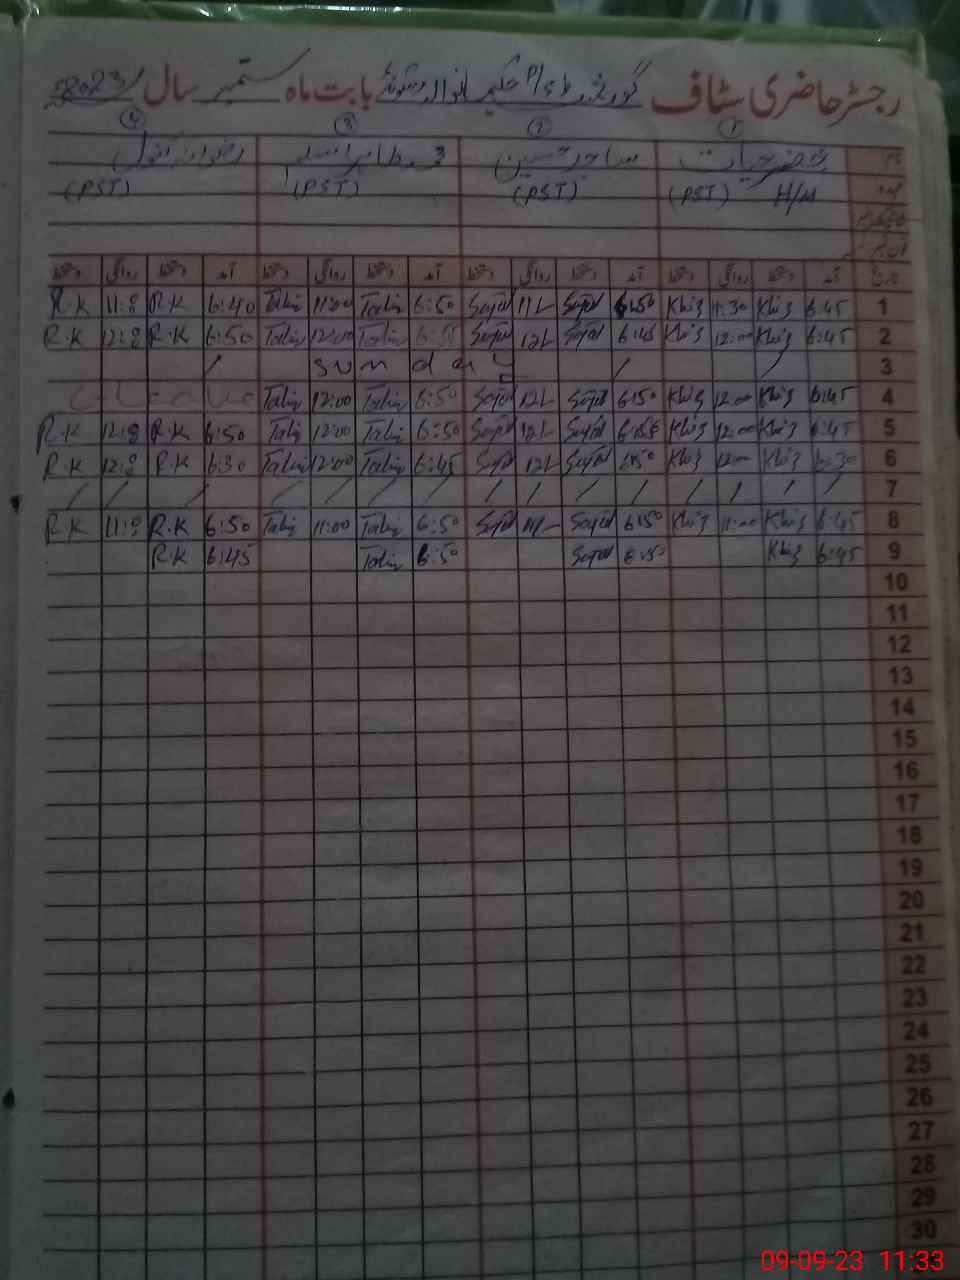 رجسٹر حاضری سٹاف گورنمنٹ بابت ماہ ستمبر سال 2023
④ ③ ② ①
نام خضر حیات ساجد حسین رضوانہ کنول
عہدہ H/M (PST) (PST) (PST) (PST)
تاریخ آمد دستخط روانگی دستخط آمد دستخط روانگی دستخط آمد دستخط روانگی دستخط آمد دستخط روانگی دستخط
R.K R.K 6:40 Tahir 11:00 Tahir 6:50 Sajid Sajid 6:50 Khiz 11:30 Khiz 6:45 1
R.K R.K 6:50 Tahir 12:00 Tahir Sajid Sajid 6:45 Khiz 12:00 Khiz 6:45 2
/ sunday / / 3
Leave Tahir 12:00 Tahir 6:50 Sajid Sajid 6:50 Khiz 12:00 Khiz 6:45 4
R.K R.K 6:50 Tahir 12:00 Tahir 6:50 Sajid Sajid Khiz 12:00 Khiz 6:45 5
R.K R.K 6:30 Tahir 12:00 Tahir 6:45 Sajid Sajid 6:50 Khiz 12:00 Khiz 6:30 6
/ / / / / / / / / / / / / / / 7
R.K R.K 6:50 Tahir 11:00 Tahir 6:50 Sajid Sajid 6:50 Khiz 11:00 Khiz 6:45 8
R.K 6:45 Tahir 6:50 Sajid 6:50 Khiz 6:45 9
10
11
12
13
14
15
16
17
18
19
20
21
22
23
24
25
26
27
28
29
30
09-09-23 11:33